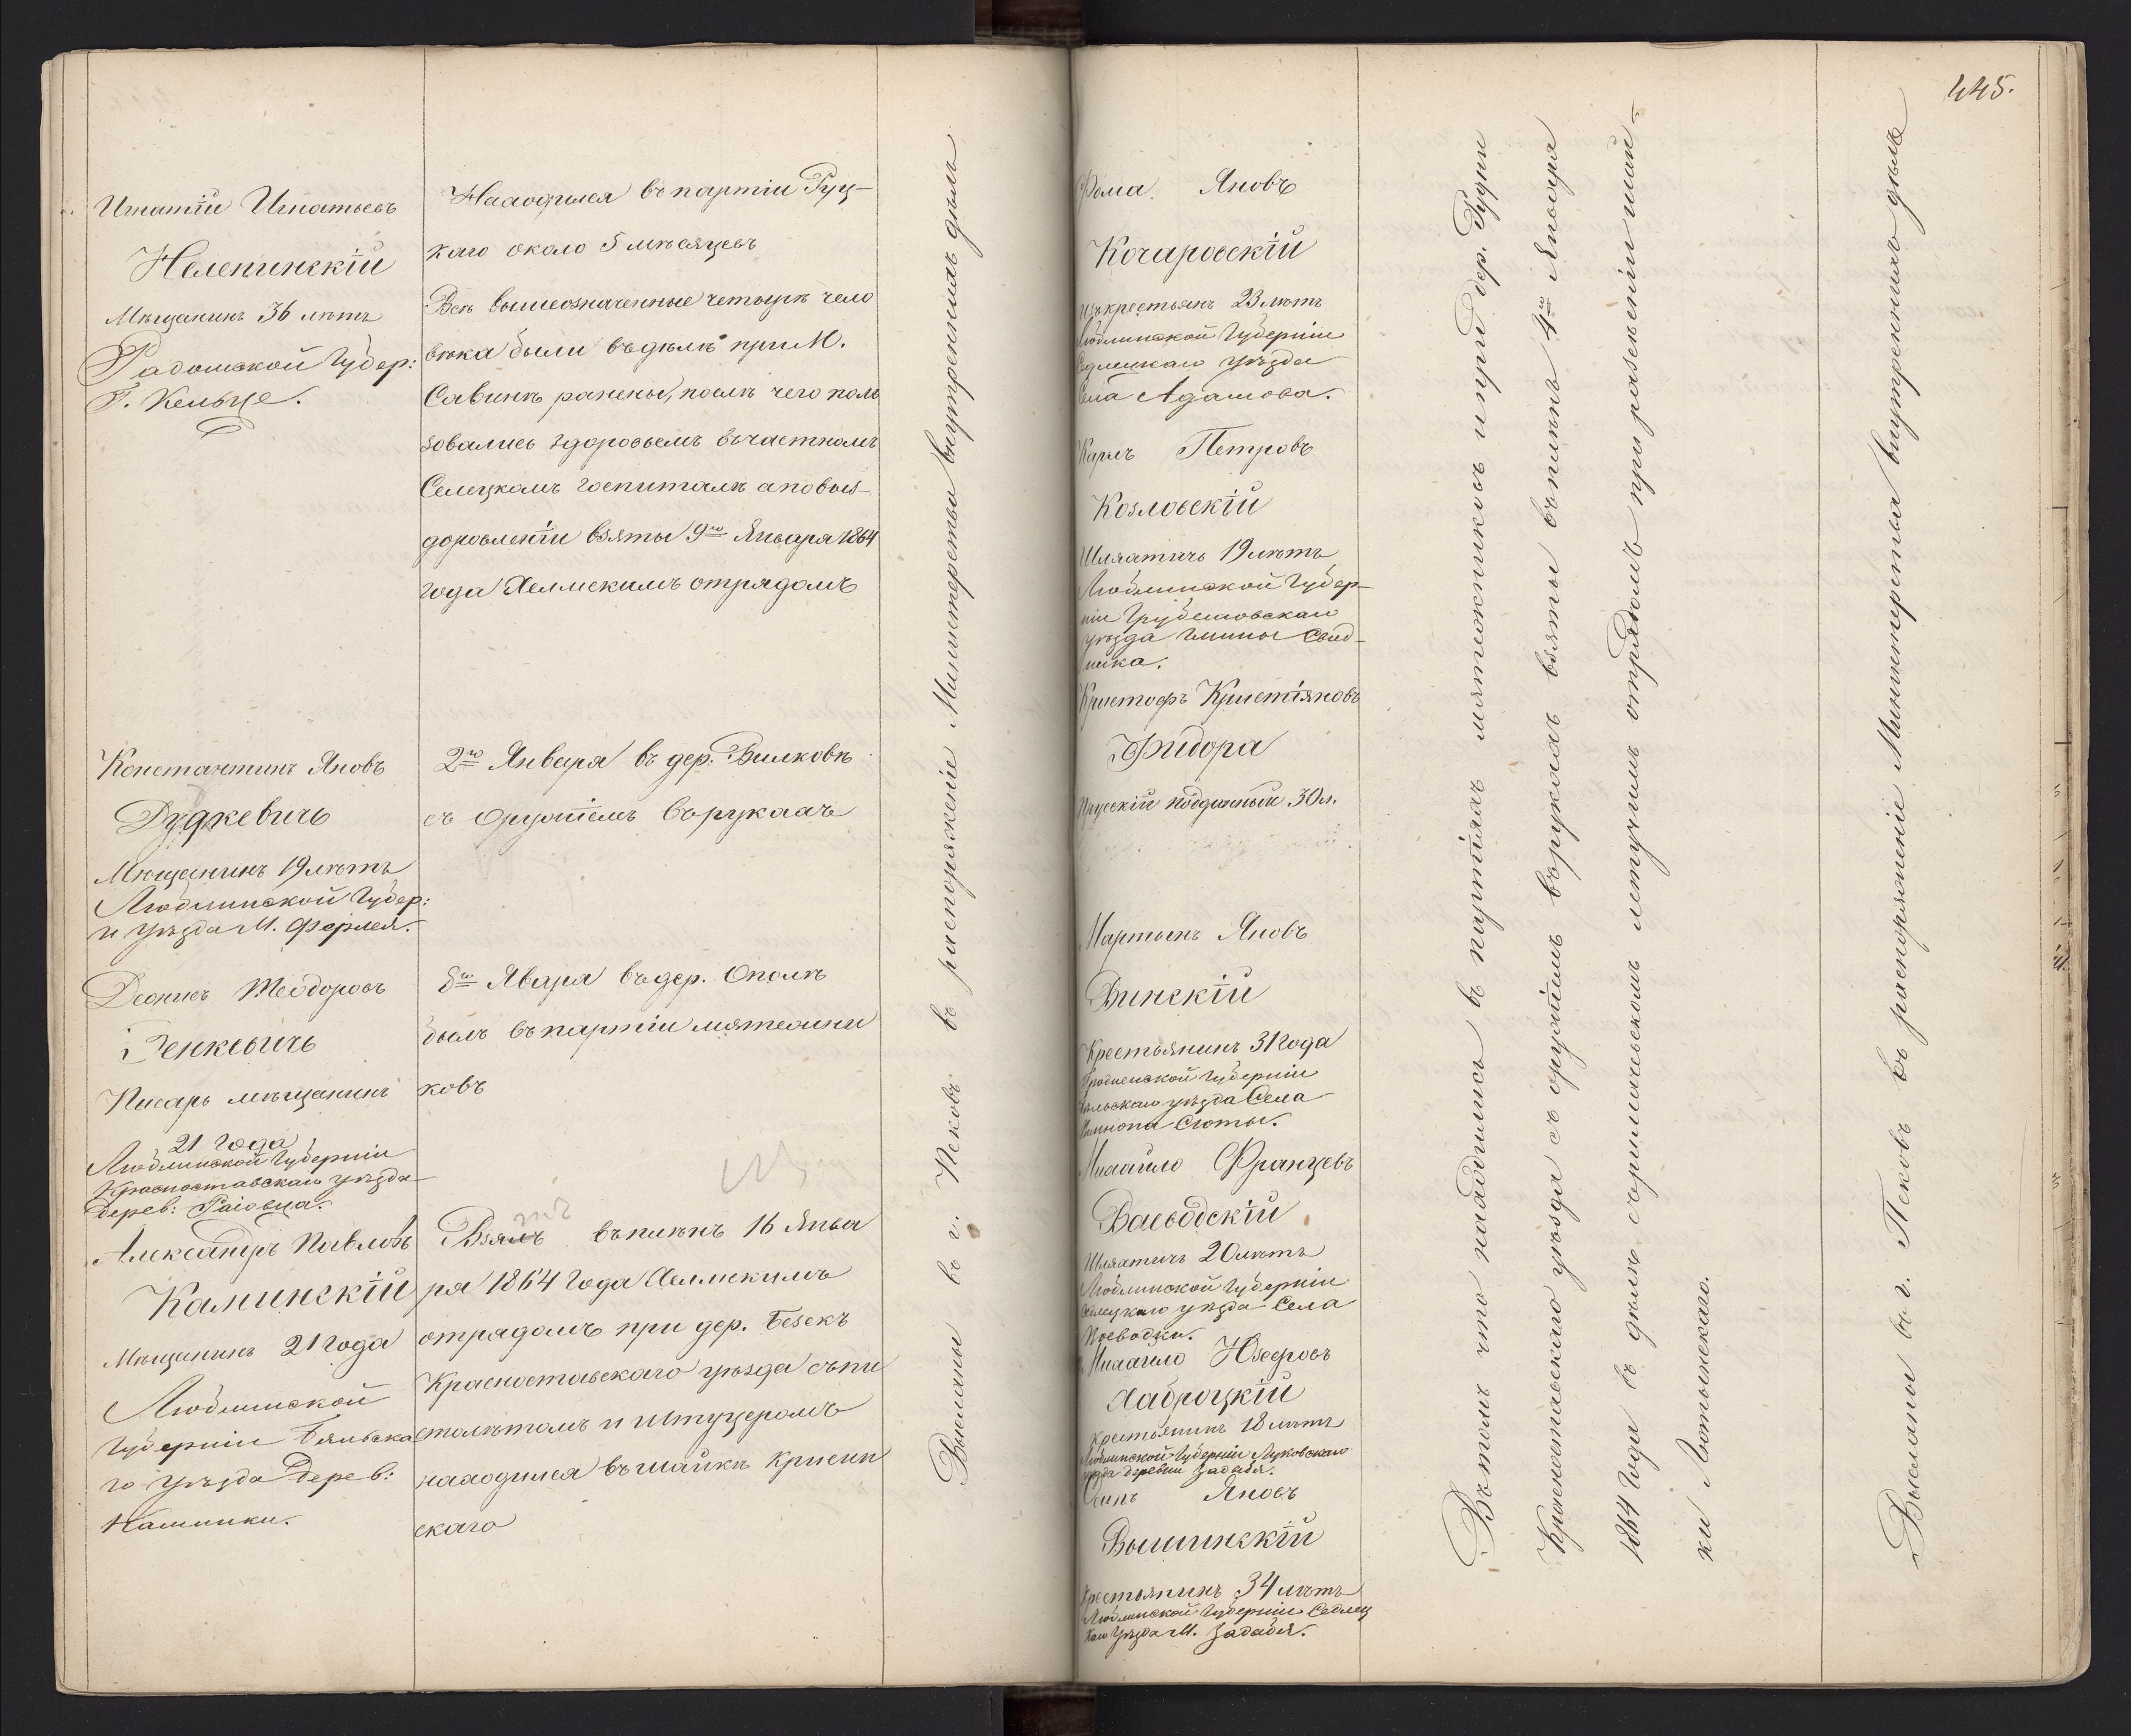 445.
Игнатій Игнатьевъ
Нелепинскій
Мѣщанинъ 36 лѣтъ
Радомской Губер:
Г. Кельце.
Находился въ партіи Руц-
каго около 5 мѣсяцевъ
Всѣ вышеозначенные четыре чело
вѣка были въ дѣлѣ при М.
Савинѣ ранены, послѣ чего поль
зовались здоровьемъ въ частномъ
Селецкомъ госпиталѣ а по выз-
доровленіи взяты 9го Января 1864
года Хелмскимъ отрядомъ
Константинъ Яновъ
Дудкевичъ
Мѣщанинъ 19 лѣтъ
Люблинской Губер:
и уѣзда М. Фирлея.
2го Января въ дер. Вилковѣ
съ оружіемъ въ рукахъ
Деонисъ Теодоровъ
Генкевичъ
Писарь мѣщанинъ
21 года
Люблинской Губерніи
Красноставскаго уѣзда
дерев: Раіовца.
Яваря въ дер. Ополѣ
былъ въ партіи мятежни
ковъ
Александръ Павловъ
Калинскій
Мѣщанинъ 21 года
Люблинской
Губерніи Бяльска
го уѣзда дерев:
Калинки.
Взялъ въ плѣнъ 16 Янва
ря 1864 года Хелмскимъ
отрядомъ при дер. Безекъ
Красноставскаго уѣзда съ пи
столѣтомъ и штуцеромъ
находился въ шайкѣ Крисин
скаго
Высланы въ г. Псковъ въ распоряженіе Министерства внутреннихъ дѣлъ
Фома Яновъ
Кочаровскій
изъ крестьянъ 23 лѣтъ
Люблинской Губерніи
Седлецкаго уѣзда
Села Адамова.
Карлъ Петровъ
Козловскій
Шляхтичъ 19 лѣтъ
Люблинской Губер-
ніи Грубешовскаго
уѣзда гмины Свид-
ника.
Кристофъ Кристіяновъ
Фидора
Прусскій подданный 30 л.
Мартынъ Яновъ
Винскій
Крестьянинъ 31 года
Гродненской Губерніи
Бѣльскаго уѣзда Села
Михайло Францевъ
Ваеводскій
Шляхтичъ 20 лѣтъ
Люблинской Губерніи
Седлецкаго уѣзда Села
Воеводки.
Михайло Юзефовъ
Хаброцкій
крестьянинъ 18 лѣтъ
Люблинской Губерніи Луковскаго
уѣзда деревни Задабя.
Осипъ Яновъ
Вышинскій
Крестьянинъ 34 лѣтъ
Люблинской Губерніи Седлец
каго уѣзда М. Задабя.
Въ томъ что находились въ партіяхъ мятежниковъ и при дер. Рудки
Красноставскаго уѣзда съ оружіемъ въ рукахъ взяты въ плѣнъ 4го Января
1864 года въ дѣлѣ съ летучимъ отрядомъ при разсеяніи шай-
ки Лютынскаго.
Высланы въ г. Псковъ въ распоряженіе Министерства внутреннихъ дѣлъ